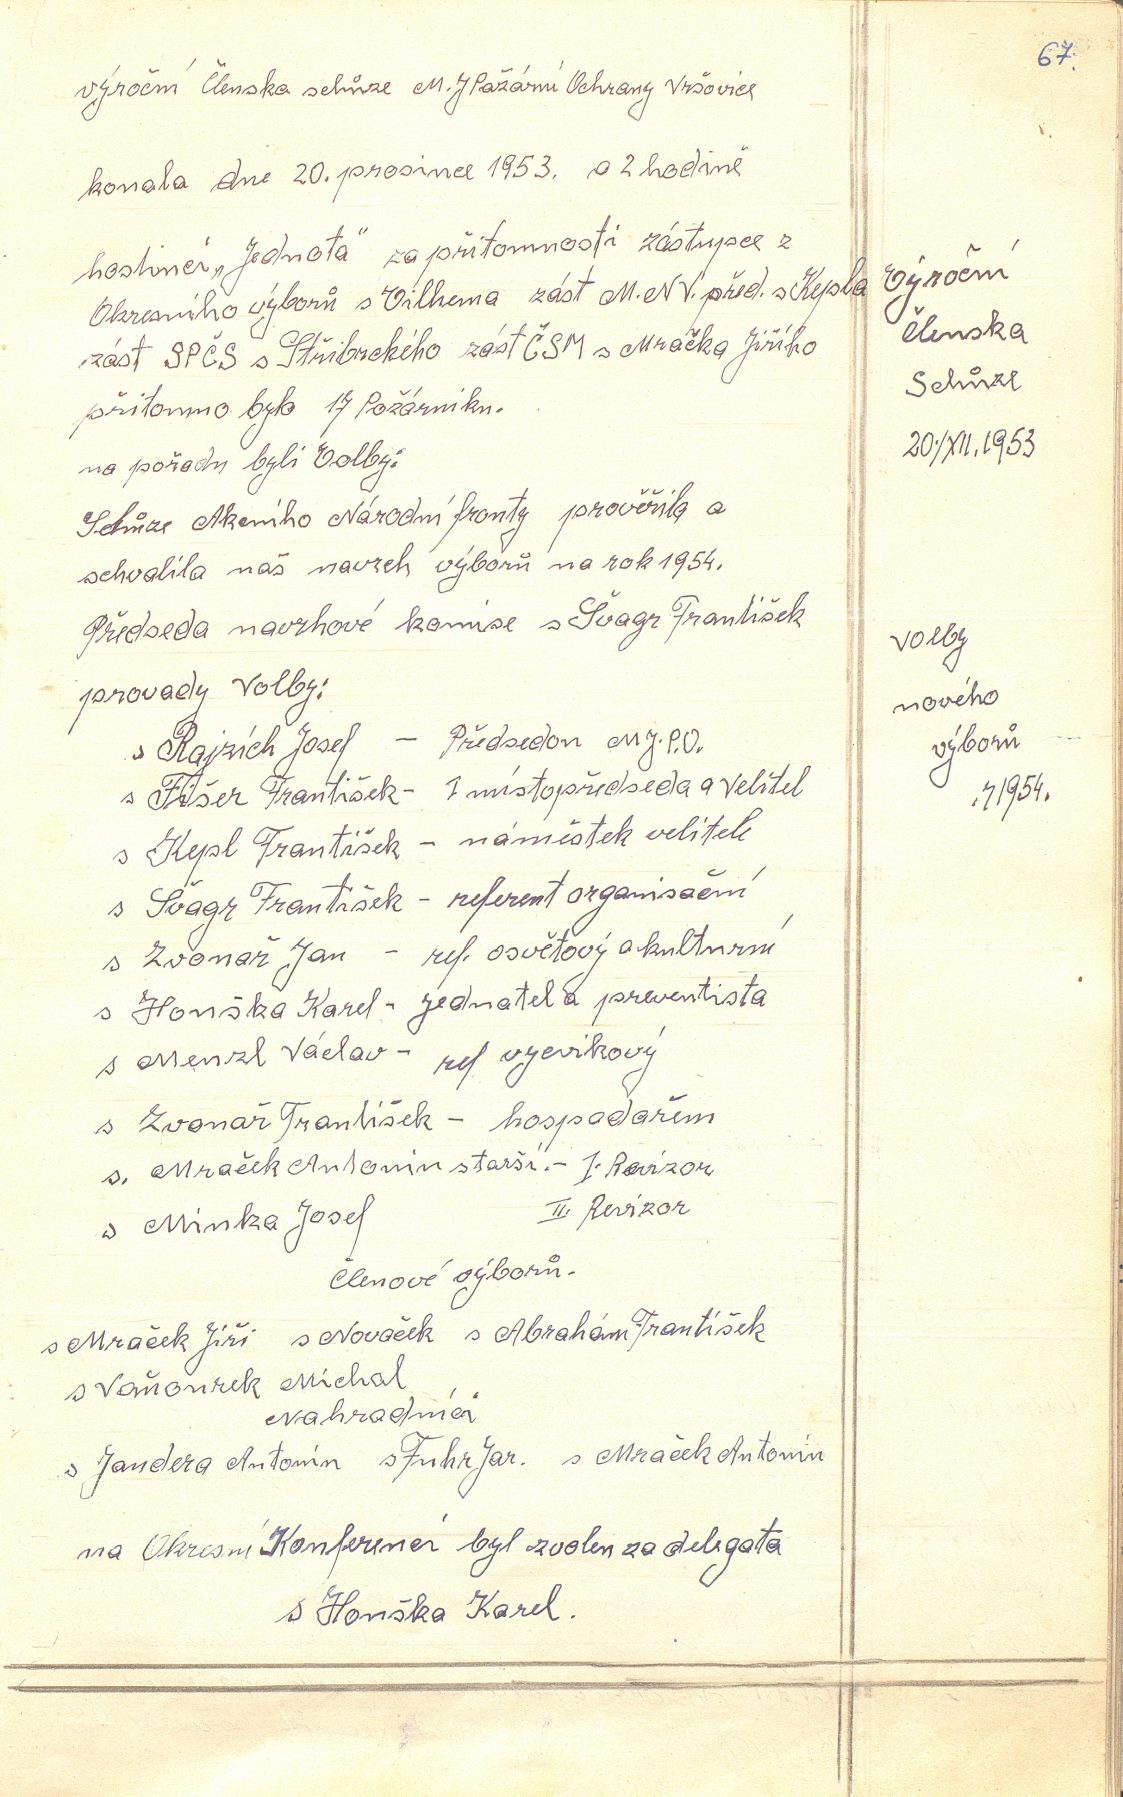 67.
výroční Členska schůze M.J Požární Ochrany Vršovice
konala dne 20. prosince 1953. o 2 hodině
hostinci „Jednota" za přitomnosti zástupce z
Okresního výborů s Vilhema zást M.NV. před. s Kepla
zást SPČS s Střibrckého zást ČSM s Mráčka Jiřího
přitomno bylo 17 Požárniku.
na pořadu byli Volby:
Schůze Akcního Národní fronty prověřila a
schvalila naš navrch výborů na rok 1954.
Předseda navrhové komise s Švagr František
provady Volby:
s Rajzich Josef — Předsedon M.J.P.O.
s Fišer František - I místopředseda a Velitel
s Kepl František - náměstek velitele
s Švagr František - referent organisační
s Zvonař Jan - ref. osvětový a kulturní
s Honška Karel - jednatel a preventista
s Menzl Václav - ref vycvikový
s Zvonař František - hospadařem
s. Mraček Antonin starší. - I. Revizor
s Minka Josef II. Revizor
Členové výborů.
s Mraček Jiři s Novaček s Abrahám František
s Vaňourek Michal
Nahradníci
s Jandera Antonin s Fuhr Jar. s Mraček Antonin
na Okresní Konferenci byl zvolen za delegata
s Honška Karel.
Výroční
Členska
Schůze
20./XII.1953
Volby
nového
výborů
1954.